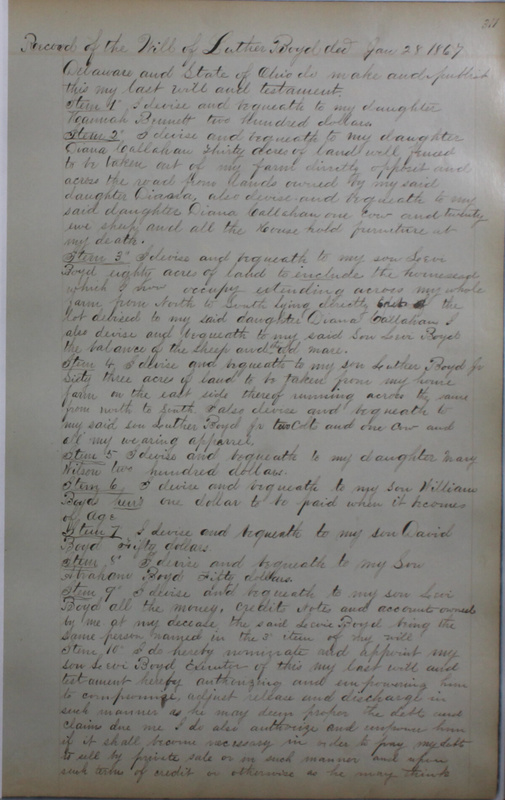 311
Record of the Will of Luther Boyd decd Jan 28 1867
Delaware and State of Ohio do make and publish
this my last will and testament.
Item 1st I devise and bequeath to my daughter
Hannah Bennett two hundred dollars
Item 2d I devise and bequeath to my daughter
Diana Callahan thirty acres of land well fenced
to be taken out of my farm directly opposit and
across the road from lands owned by my said
daughter Diana, also devise and bequeath to my
said daughter Diana Callahan one Cow and twenty
ewe sheep and all the House hold furniture at
my death.
Item 3d I devise and bequeath to my son Levi
Boyd eighty acres of land to include the homestead
which I now occupy extending across my whole
farm from North to South lying directly East of the
lot devised to my said daughter Diana Callahan I
also devise and bequeath to my said Son Levi Boyd
the balance of the sheep and the old mare.
Item 4 I devise and bequeath to my son Luther Boyd Jr
Sixty three acres of land to be taken from my home
farm on the east side thereof running across the same
from north to South. I also devise and bequeath to
my said son Luther Boyd Jr two Colts and one cow and
all my wearing apparrel,
Item 5 I devise and bequeath to my daughter Mary
Wilson two hundred dollars.
Item 6 I devise and bequeath to my son William
Boyd one dollar to be paid when it becomes
of Age
Item 7 I devise and bequeath to my son David
Boyd Fifty dollars
Item 8th I devise and bequeath to my Son
Abraham Boyd Fifty dollars.
Item 9th I devise and bequeath to my son Levi
Boyd all the money, Credit Notes and account owned
by me at my decease, the said Levi Boyd being the
same person named in the 3d item of my will
Item 10th I do hereby nominate and appoint my
son Levi Boyd Executor of this my last will and
testament hereby authorizing and empowering him
to compromise adjust release and discharge in
such manner as he may deem proper the debt and
claims due me I do also authorize and empower him
if it shall become necessary in order to pay my debt
to sell by private sale or in such manner and upon
such terms of credit or otherwise as he may think